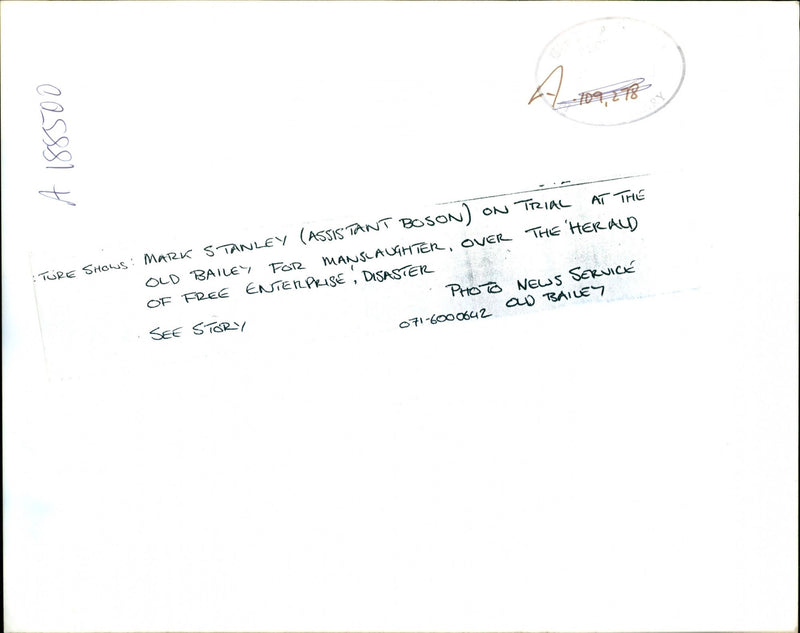 A 188500
A 109,278
:TURE SHOWS: MARK STANLEY (ASSISTANT BOSON) ON TRIAL AT THE
OLD BAILEY FOR MANSLAUGHTER, OVER THE 'HERALD
OF FREE ENTERPRISE', DISASTER
SEE STORY
PHOTO NEWS SERVICE
OLD BAILEY
071-6000642